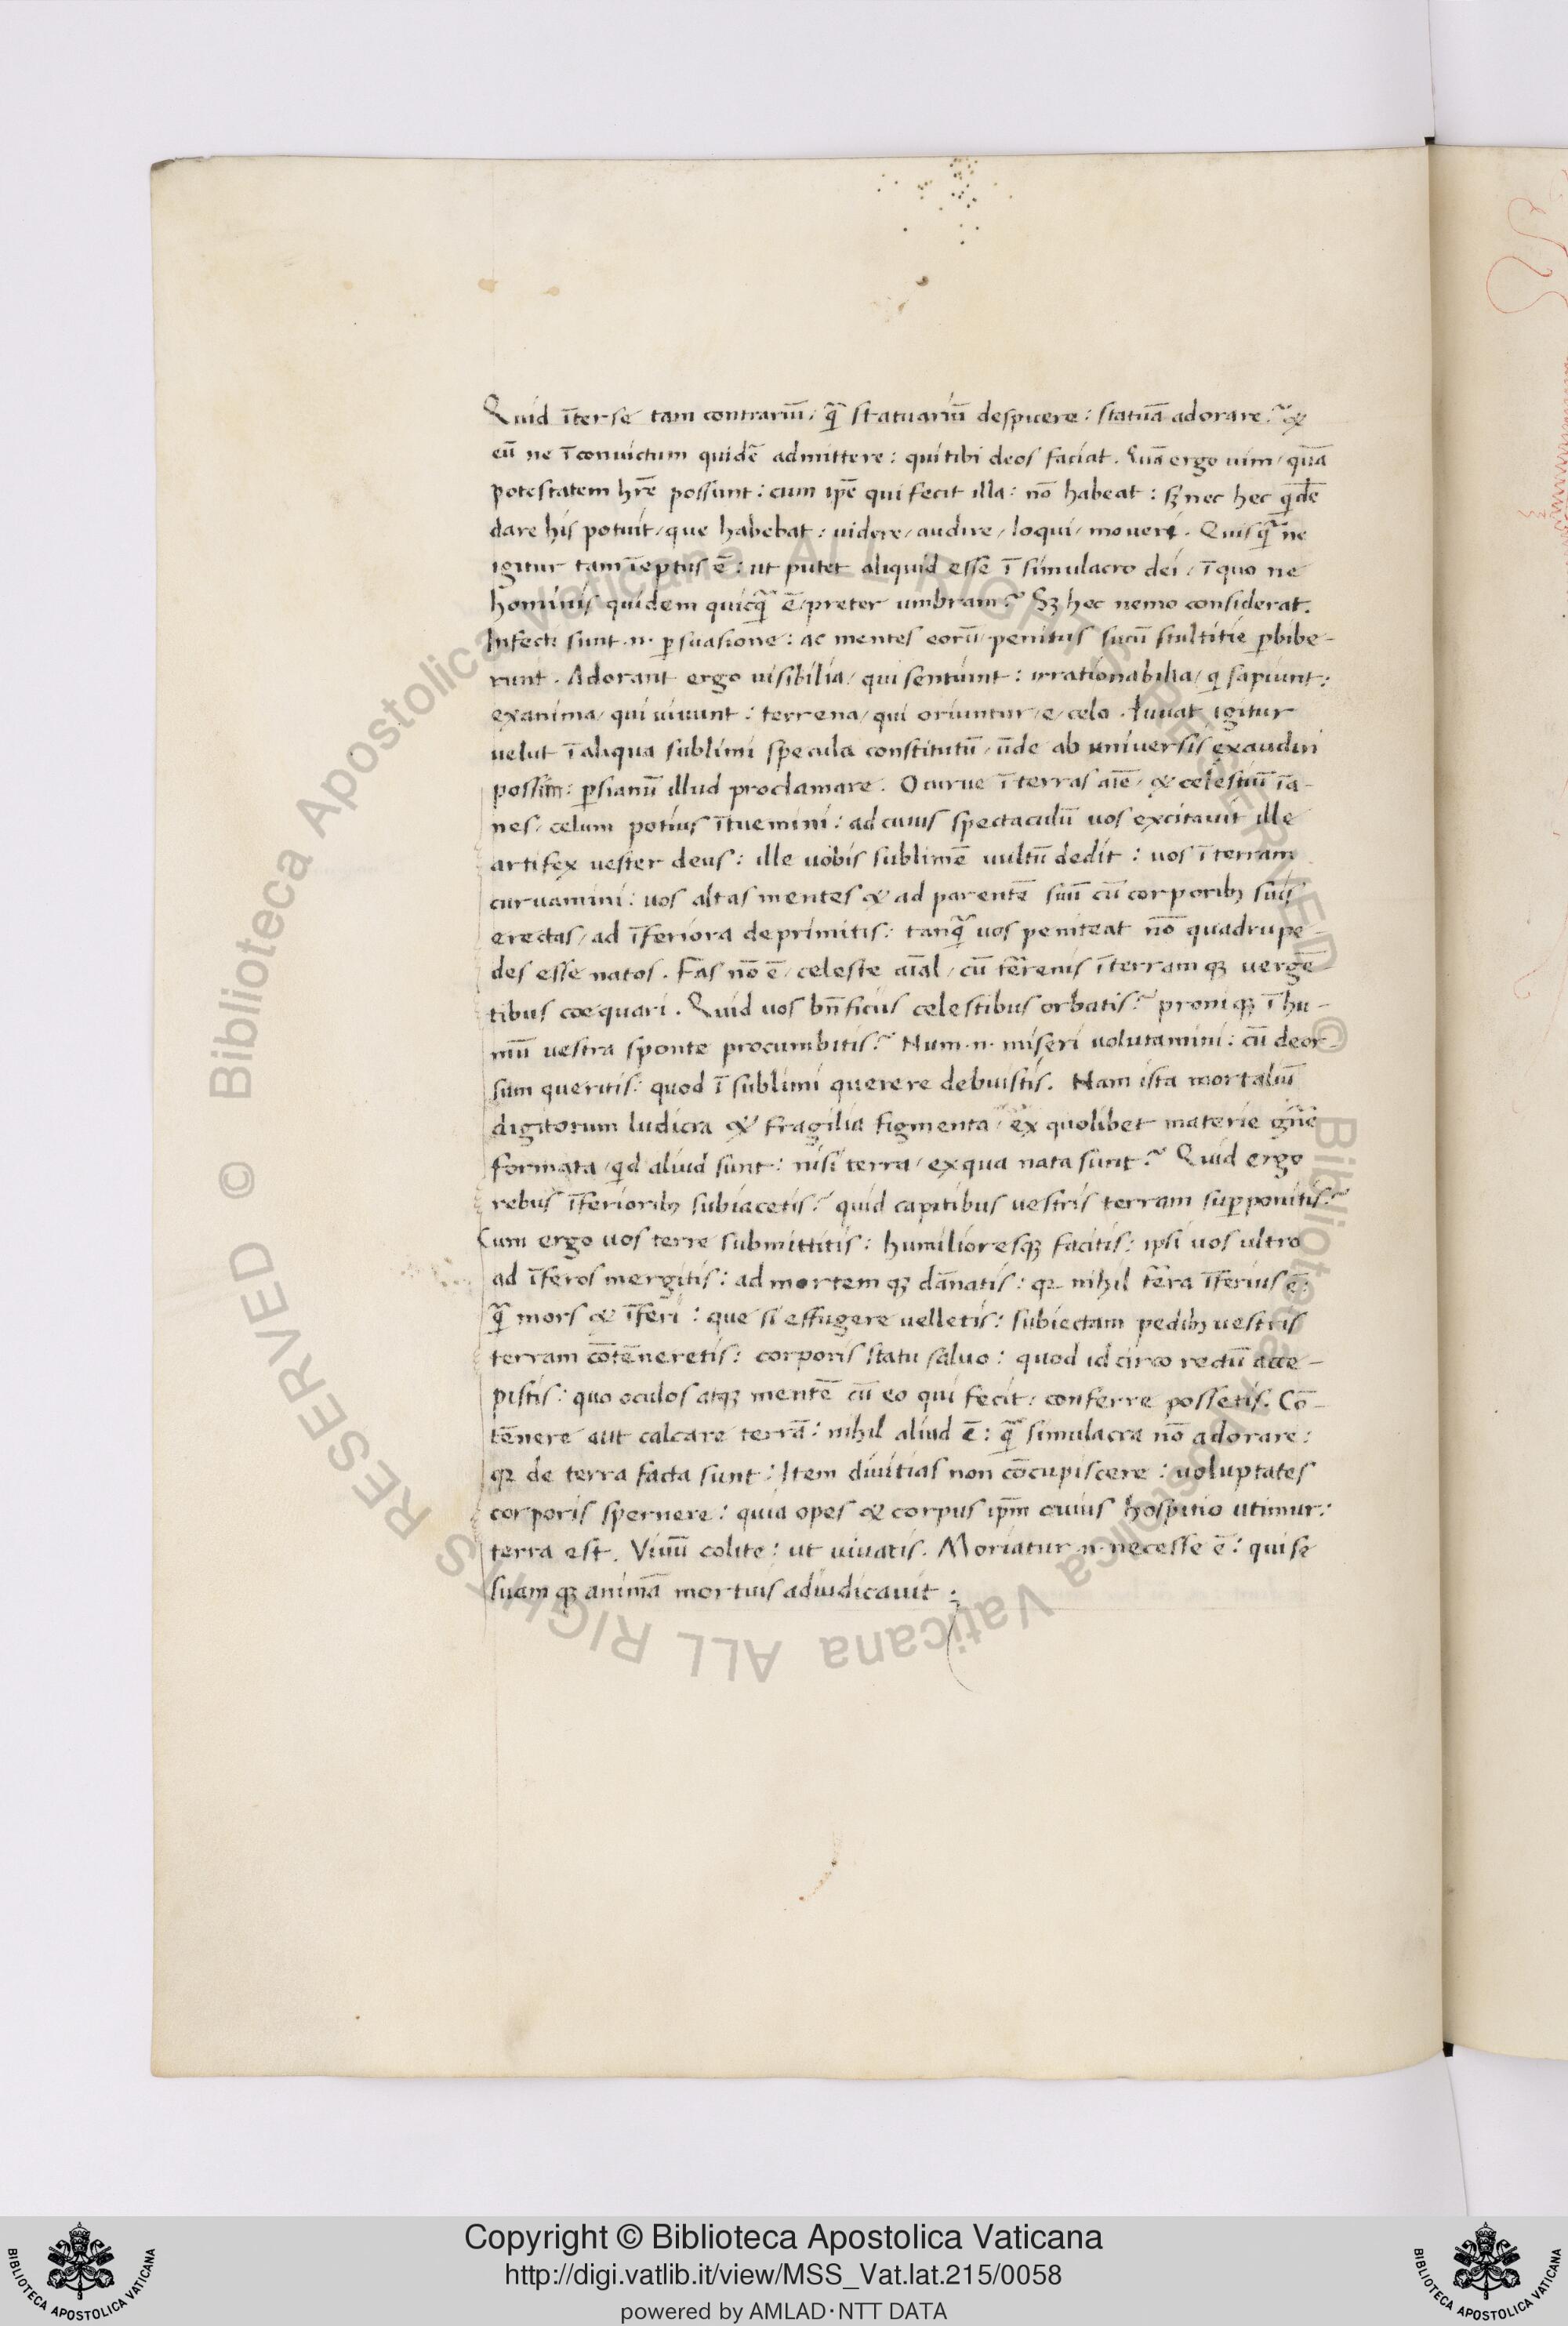 Quid īter se tam contrariū / qͣ̄ statuariū despicere : statuā adorare ? &
eū ne ī convictum quidē admittere : qui tibi deos faciat . Quā ergo uim / quā
potestatem hr̄e possunt : cum ip̄e qui fecit illa : nō habeat : sꝫ nec hec qͥdē
dare his potuit / que habebat : uidere / audire / loqui / moueri . Quisqͣ̄ ne
igitur tam īeptus ē : ut putet aliquid esse ī simulacro dei / ī quo ne
hominis quidem quicqͣ̄ ē / preter umbram ? Sꝫ hec nemo considerat .
Infecti sunt .n. ꝑsuasione : ac mentes eorū / penitus sucū stultitie ꝑbibe-
runt . Adorant ergo uisibilia / qui sentiunt : irrationabilia / qͥ sapiunt :
exanima / qui uiuunt : terrena / qui oriuntur / e / celo . Iuuat igitur
uelut ī aliqua sublimi specula constitutū / ūde ab uniuersis exaudiri
possim : ꝑsianū illud proclamare . O curue ī terras aīe / & celestiū īa-
nes / celum potius ītuemini : ad cuius spectaculū uos excitauit ille
artifex uester deus : ille uobis sublimē uultū dedit : uos ī terram
curuamini : uos altas mentes & ad parentē suū cū corporibꝫ suis
erectas / ad īferiora deprimitis : tanqͣ̄ uos peniteat nō quadrupe-
des esse natos . Fas nō ē / celeste aīal / cū terrenis ī terramqꝫ uergē-
tibus coequari . Quid uos bn̄ficiis celestibus orbatis ? proniqꝫ ī hu-
mū uestra sponte procumbitis ? Num .n. miseri uolutamini : cū deor-
sum queritis : quod ī sublimi querere debuistis . Nam ista mortaliū
digitorum ludicra & fragilia figmenta / ex quolibet materie gn̄e
formata / qͥd aliud sunt : nisi terra / ex qua nata sunt ? Quid ergo
rebus īferioribꝫ subiacetis ? quid capitibus uestris terram suꝑponitis ?
Cum ergo uos terre submittitis : humilioresqꝫ facitis : ipsi uos ultro
ad īferos mergitis : ad mortemqꝫ dānatis : qꝛ nihil terra īferius ē :
qͣ̄ mors & īferi : que si effugere uelletis : subiectam pedibꝫ uestris
terram cōtēneretis : corporis statu saluo : quod idcirco rectū acce-
pistis : quo oculos atqꝫ mentē cū eo qui fecit / conferre possetis . Cō-
tēnere aut calcare terrā : nihil aliud ē : qͣ̄ simulacra nō adorare :
qꝛ de terra facta sunt : Item diuitias non cōcupiscere : uoluptates
corporis spernere : quia opes & corpus ip̄m cuius hospitio utimur :
terra est . Viuū colite : ut uiuatis . Moriatur .n. necesse ē : qui se
suamqꝫ animā mortuis adiudicauit ;
© Biblioteca Apostolica Vaticana ALL RIGHTS RESERVED © Biblioteca Apostolica Vaticana ALL RIGHTS RESERVED
Copyright © Biblioteca Apostolica Vaticana
http://digi.vatlib.it/view/MSS_Vat.lat.215/0058
powered by AMLAD·NTT DATA
BIBLIOTECA APOSTOLICA VATICANA
BIBLIOTECA APOSTOLICA VATICANA